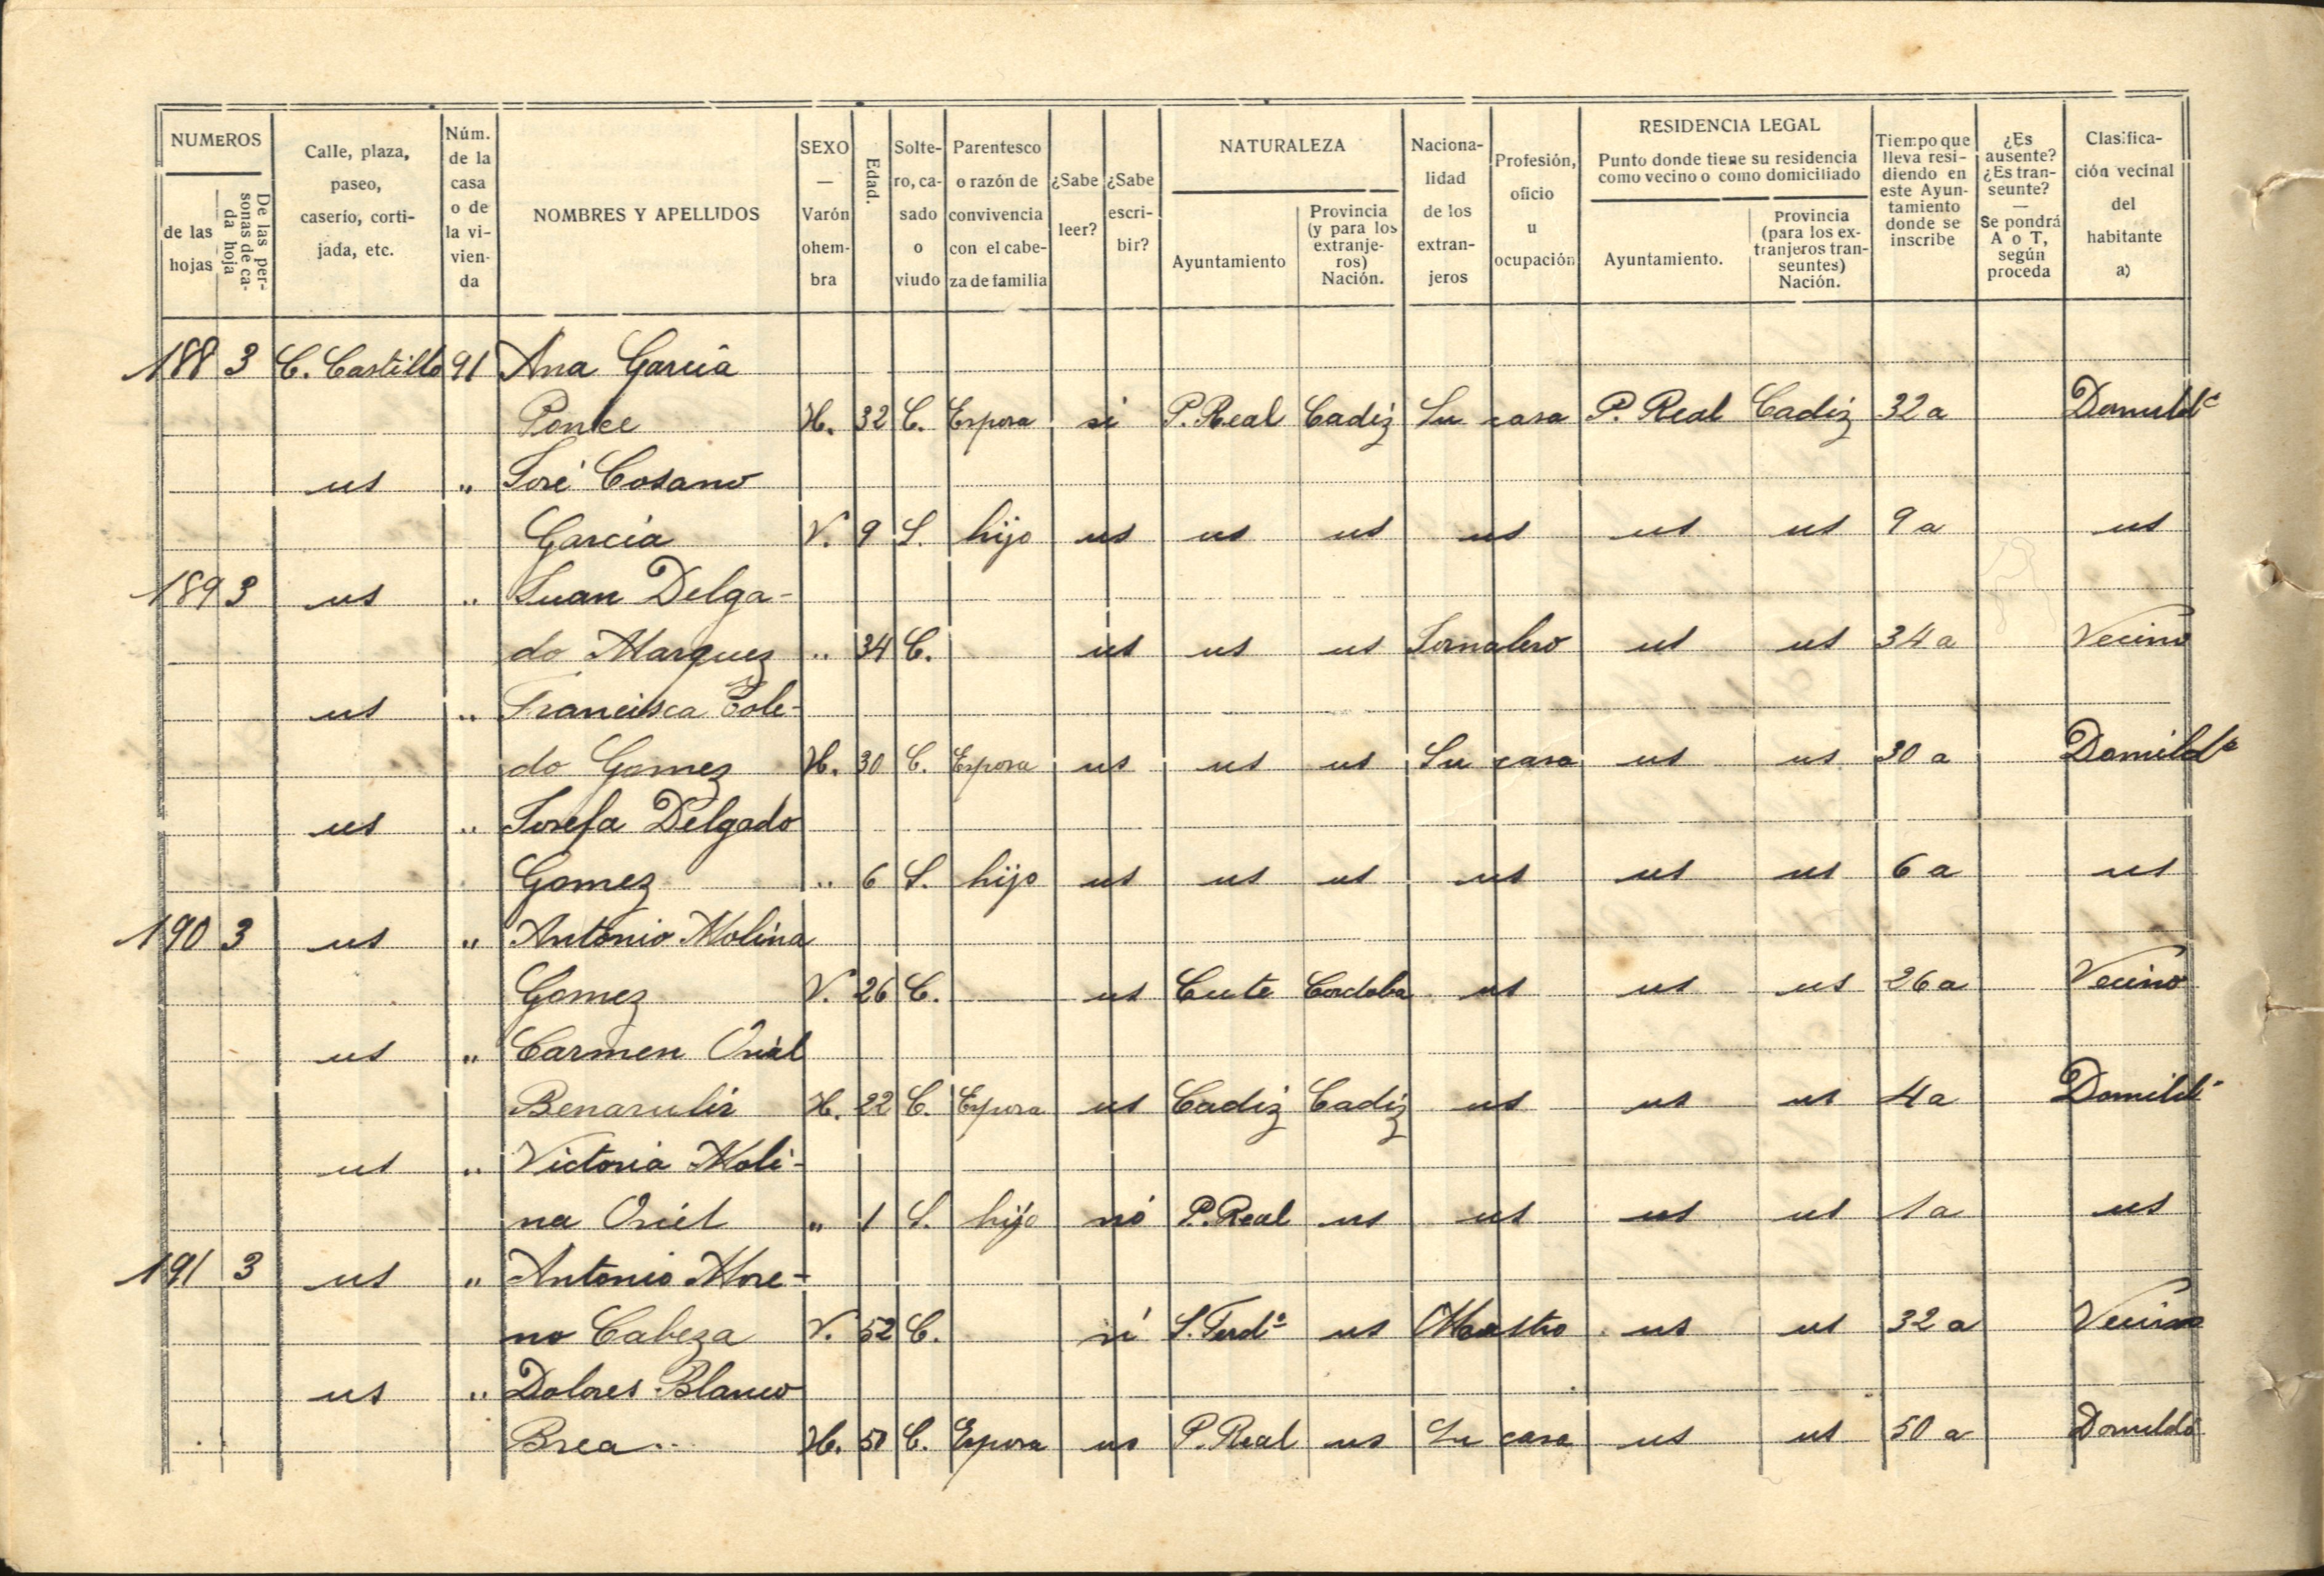 NUMEROS
de las hojas
De las personas de cada hoja
Calle, plaza, paseo, caserío, cortijada, etc.
Núm. de la casa o de la vivienda
NOMBRES Y APELLIDOS
SEXO — Varón o hembra
Edad.
Soltero, casado o viudo
Parentesco o razón de convivencia con el cabeza de familia
¿Sabe leer?
¿Sabe escribir?
NATURALEZA
Ayuntamiento
Provincia (y para los extranjeros) Nación.
Nacionalidad de los extranjeros
Profesión, oficio u ocupación
RESIDENCIA LEGAL
Punto donde tiene su residencia como vecino o como domiciliado
Ayuntamiento.
Provincia (para los extranjeros transeuntes) Nación.
Tiempo que lleva residiendo en este Ayuntamiento donde se inscribe
¿Es ausente? ¿Es transeunte? — Se pondrá A o T, según proceda
Clasificación vecinal del habitante a)
188 3 C. Castillo 91 Ana García
Ponce H. 32 C. Esposa si P. Real Cadiz Su casa P. Real Cadiz 32 a
us " José Cosano
García V. 9 S. hijo us us us us us us 9 a us
189 3 us " Juan Delga-
do Marquez " 34 C. us us us Jornalero us us 34 a Vecino
us " Francisca Tole-
do Gomez H. 30 C. Esposa us us us Su casa us us 30 a Domildª
us " Josefa Delgado
Gomez " 6 S. hijo us us us us us us 6 a us
190 3 us " Antonio Molina
Gomez V. 26 C. us Cordoba us us us 26 a Vecino
us " Carmen
H. 22 C. Esposa us Cadiz Cadiz us us us 4 a
us " Victoria Moli-
na " 1 S. hijo nó P. Real us us us us 1 a us
191 3 us " Antonio More-
no Cabeza V. 52 C. sí S. Ferdº us Maestro us us 32 a Vecino
us " Dolores Blanco
Brea H. 50 C. Esposa us P. Real us Su casa us us 50 a Domildª